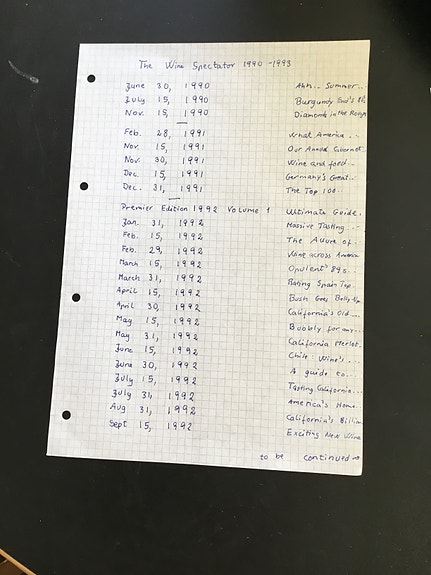 The Wine Spectator 1990 - 1993
June 30, 1990 Ahh... Summer...
July 15, 1990 Burgundy End's 80,
Nov. 15, 1990 Diamonds in the Rough
Feb. 28, 1991 What America...
Nov. 15, 1991 Our Annual Cabernet...
Nov. 30, 1991 Wine and food...
Dec. 15, 1991 Germany's Great...
Dec. 31, 1991 The Top 100...
Premier Edition 1992 Volume 1 Ultimate Guide.
Jan. 31, 1992 Massive Tasting...
Feb. 15, 1992 The Allure of...
Feb. 29, 1992 Wine across America
March 15, 1992 Opulent 89s...
March 31, 1992 Spain Top..
April 15, 1992 Bush Goes Belly Up..
April 30, 1992 California's Old...
May 15, 1992 Bubbly for any...
May 31, 1992 California Merlot.
June 15, 1992 Chile Wine's...
June 30, 1992 A guide to...
July 15, 1992 Tasting California...
July 31, 1992 America's Home.
Aug 31, 1992 California's Billion
Sept 15, 1992 Exciting New Wine
to be continued →